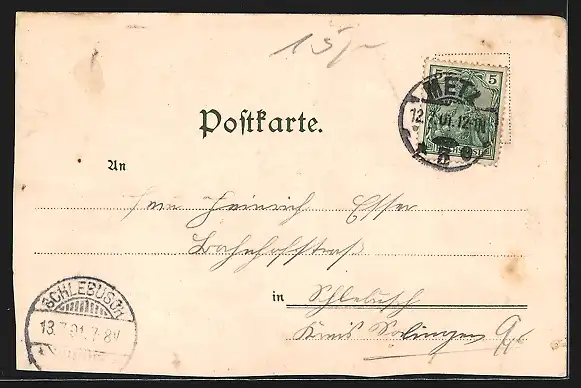 15
5 5
METZ
12.7.01.12-1N
Postkarte.
An
Heinrich Esser
Bahnhofstraß
in Schlebusch
Kreis Solingen
SCHLEBUSCH
13.7.01.7-8V